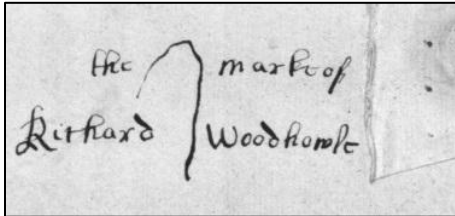 the marke of
Richard Woodhowse